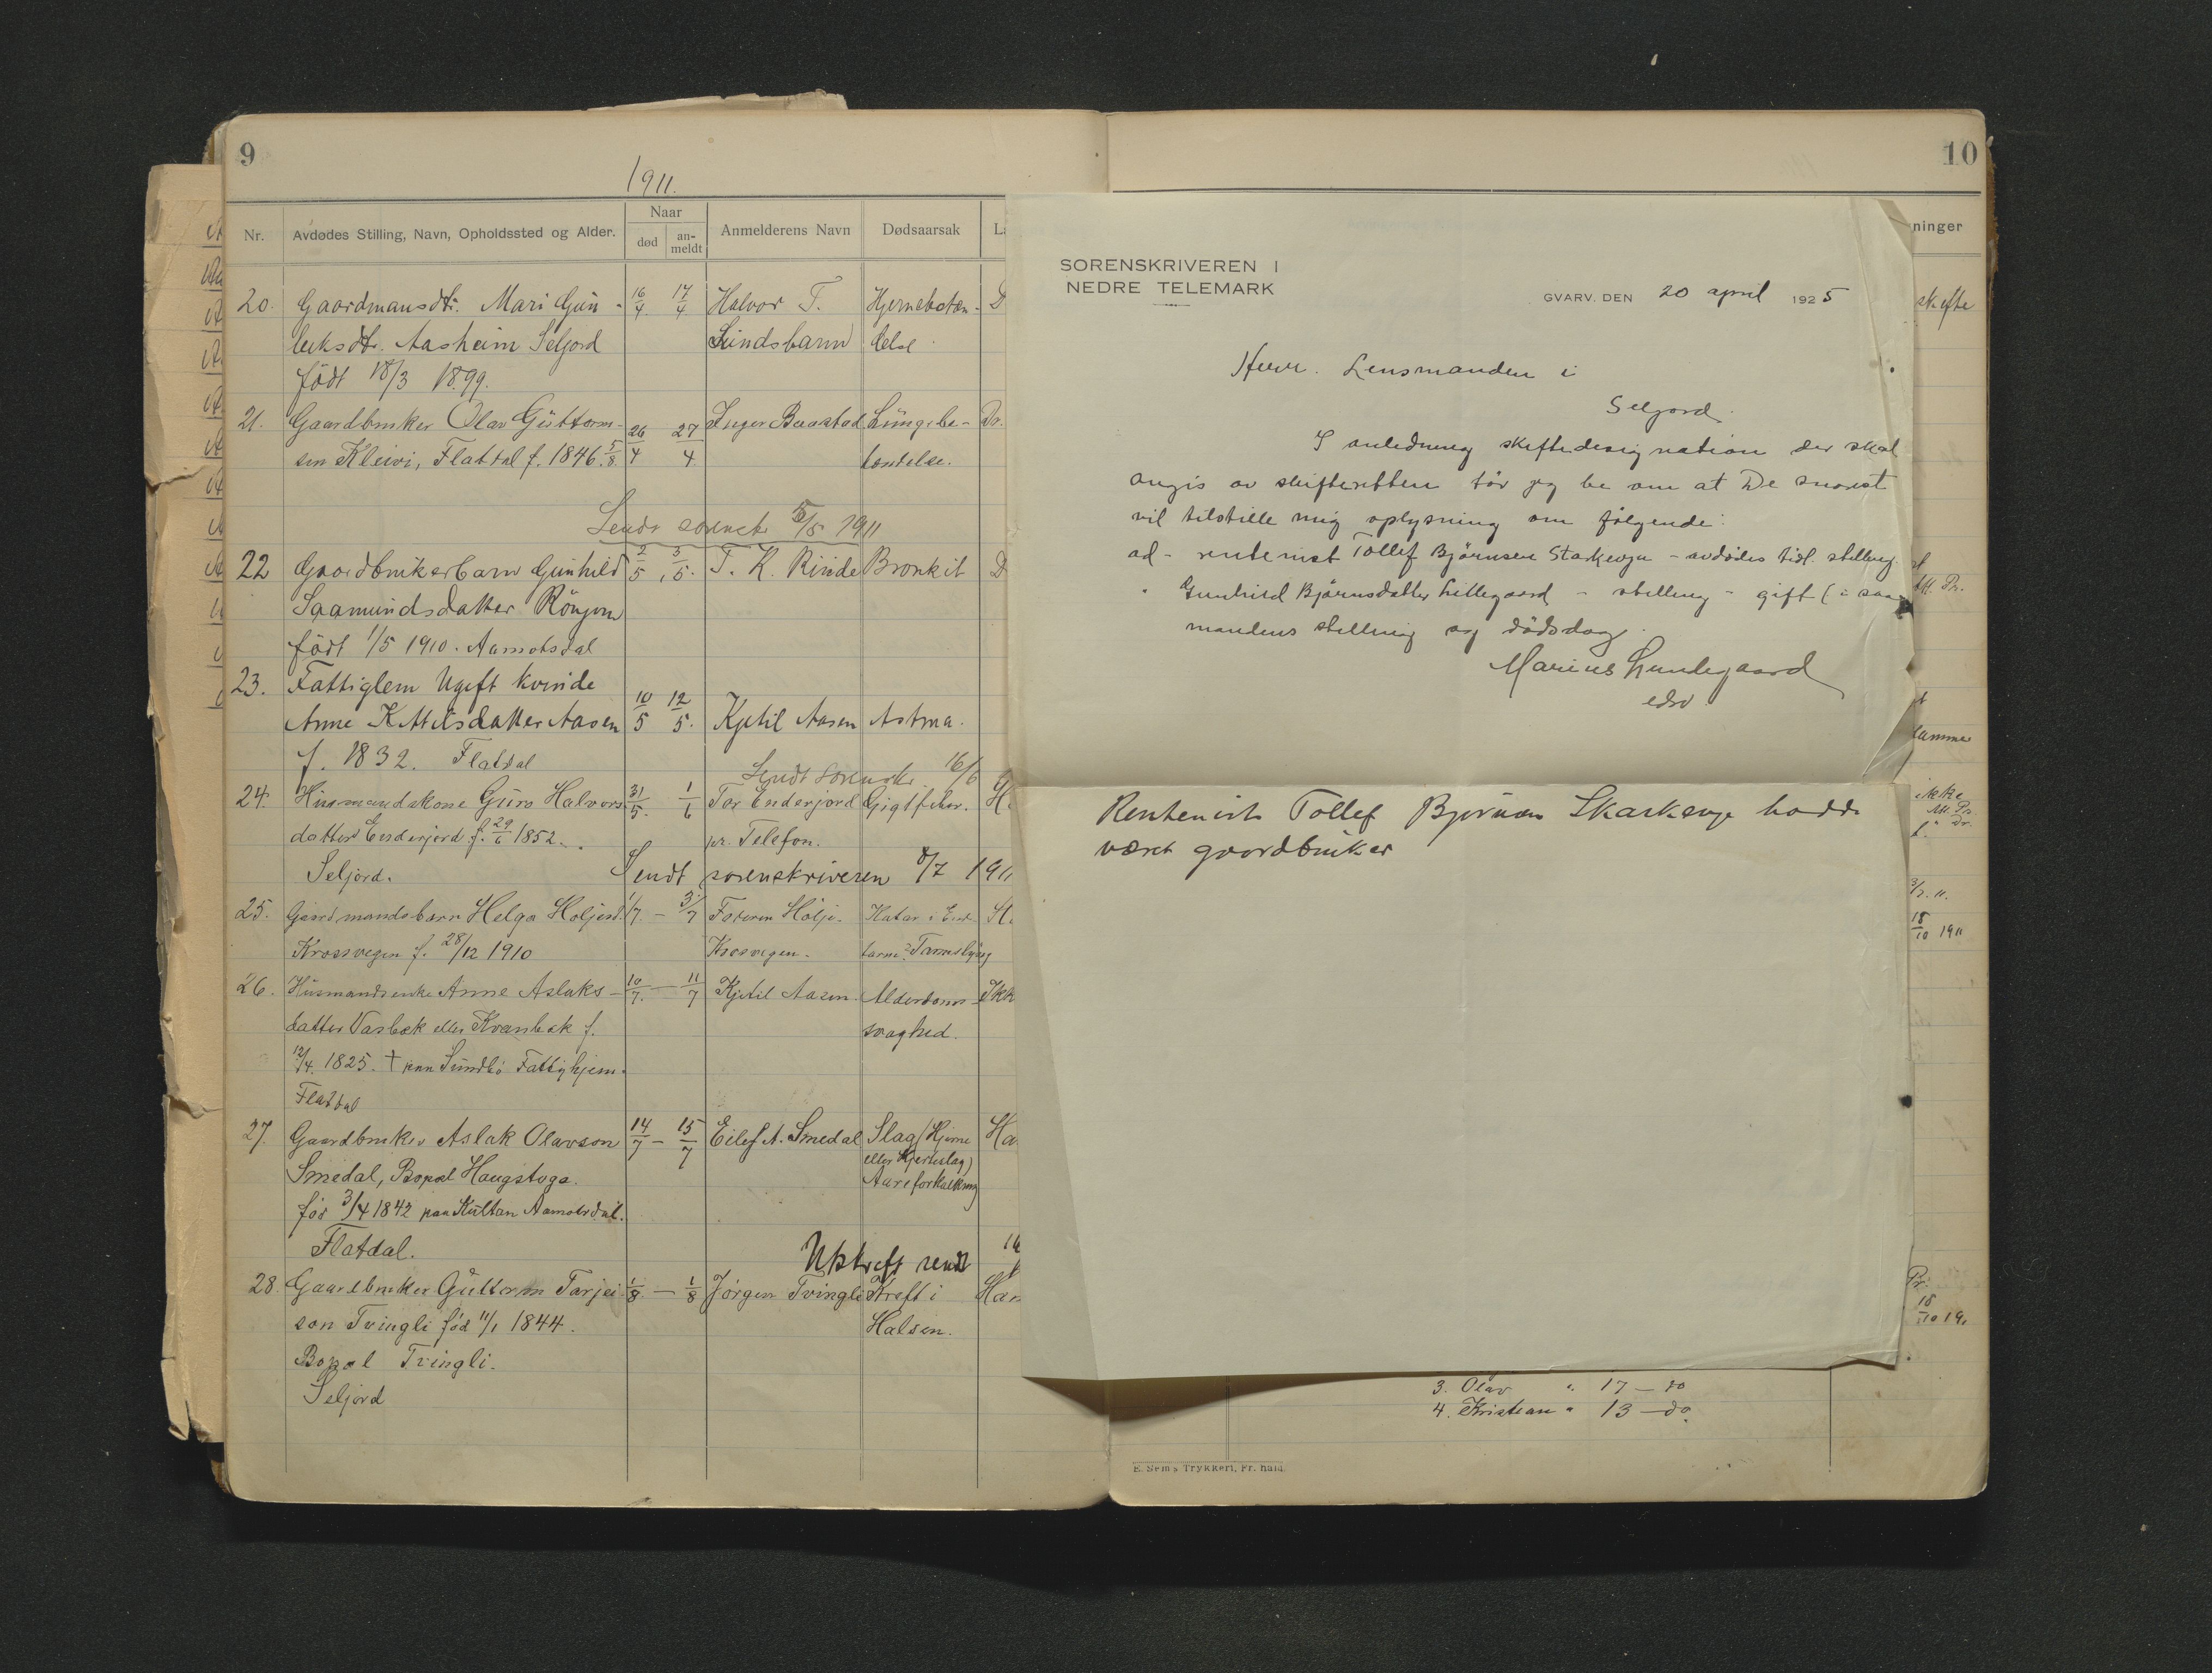 9
1911.
Nr.
Avdødes Stilling, Navn, Opholdssted og Alder.
Naar
død
an-
meldt
Anmelderens Navn
Dødsaarsak
20. Gaardmansdtr. Mari Gun- 16/4. 17/4. Halvor T. Hjernebetæn- D
leksdtr. Aasheim Seljord Sundsbarm delse.
födt 18/3 1899.
21. Gaardbruker Olav Guttorm- 26/4 27/4 Inger Baastad Lungebe- Dr.
sen Kleivi, Flatdal f. 1846. 5/8. tændelse.
Sendt sorenskr 5/5 1911
22 Gaardbrukerbarn Gunhild 2/5, 3/5. T. K. Rinde Bronkit D
Saamundsdatter Röngen
födt 1/5 1910. Aamotsdal
23. Fattiglem Ugift kvinde
Anne Kittilsdatter Aasen 10/5 12/5. Kjetil Aasen Astma.
f. 1832. Flatdal
Sendt sorenskr. 16/6
24. Husmandskone Guro Halvors 31/5. 1/6 Tor Enderjord Gigtfeber. H
datter Enderjord f. 29/6 1852. pr. Telefon.
Seljord.
Sendt sorenskriveren 8/7 1911
25. Gaardmandsbarn Helga Holjesd. 1/7. – 3/7 Faderen Hölje Katar i End-
Krossvegen f. 28/12 1910 Krosvegen. tarm
26. Husmandsenke Anne Aslaks- 10/7. – 11/7 Kjetil Aasen Alderdoms- Ikk
datter Vasbæk eller Kvanbæk f. svaghed.
12/4. 1825. † paa Sundbö Fattighjem.
Flatdal
27. Gaardbruker Aslak Olavson 14/7 – 15/7 Eilef A. Smedal Slag (Hjerne Ha
Smedal, Bopæl Haugstoga. eller Hjerteslag)
Aareforkalkning
för 3/4 1842 paa Kultan Aamotsdal.
Flatdal.
Utskrift sendt
28. Gaardbruker Guttorm Tarjei- 1/8. – 1/8 Jörgen Tvingli Kreft i Han
son Tvingli föd 11/1 1844. Halsen.
Bopæl Tvingli.
Seljord
10
ninger
skifte
SORENSKRIVEREN I
NEDRE TELEMARK
GVARV, DEN 20 april 1925
Herr. Lensmanden i
Seljord.
I anledning skiftedesignation der skal
angis av skifteretten tör jeg be om at De snarest
vil tilstille mig oplysning om fölgende:
ad - rentenist Tollef Björnsen Skarkevju - avdödes tidl. stilling.
" Gunhild Björnsdatter Lillegaard - stilling - gift (i saa
mandens stilling og dödsdag.
Marius Lundegaard
edsv.
Rentenist Tollef Bjørnsen Skarkevje hadde
været gaardbruker
ikke
3/7. 11.
18/10 1911
Pr.
18/10 19
3. Olav " 17 – do
4. Kristian " 13 – do.
E. Sem's Trykkeri, Fr.hald.